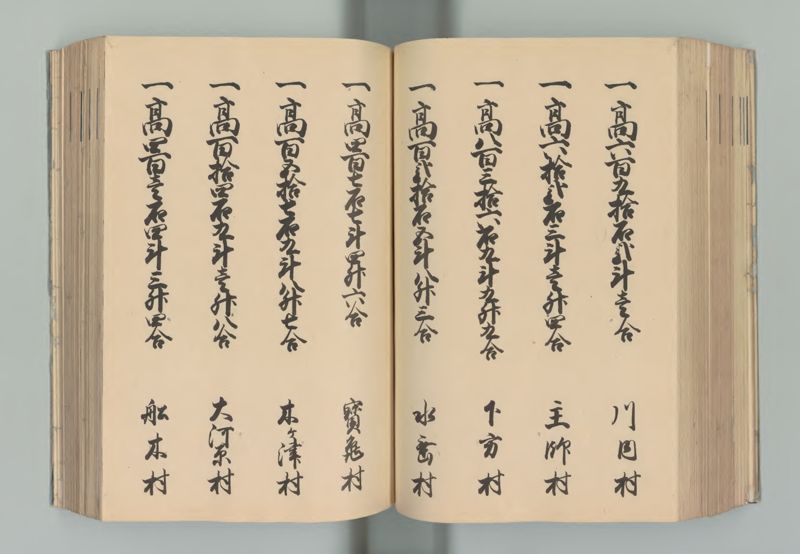 一高六百九拾石弐斗壱合 川内村
一高六拾弐石三斗壱升四合 主師村
一高八百三拾六石九斗九升九合 下方村
一高百弐拾石五斗八升三合 水垂村
一高四百七石七斗四升六合 宝亀村
一高百五拾七石九斗八升七合 木ヶ津村
一高百拾四石九斗壱升八合 大河原村
一高四百壱石四斗三升四合 船木村